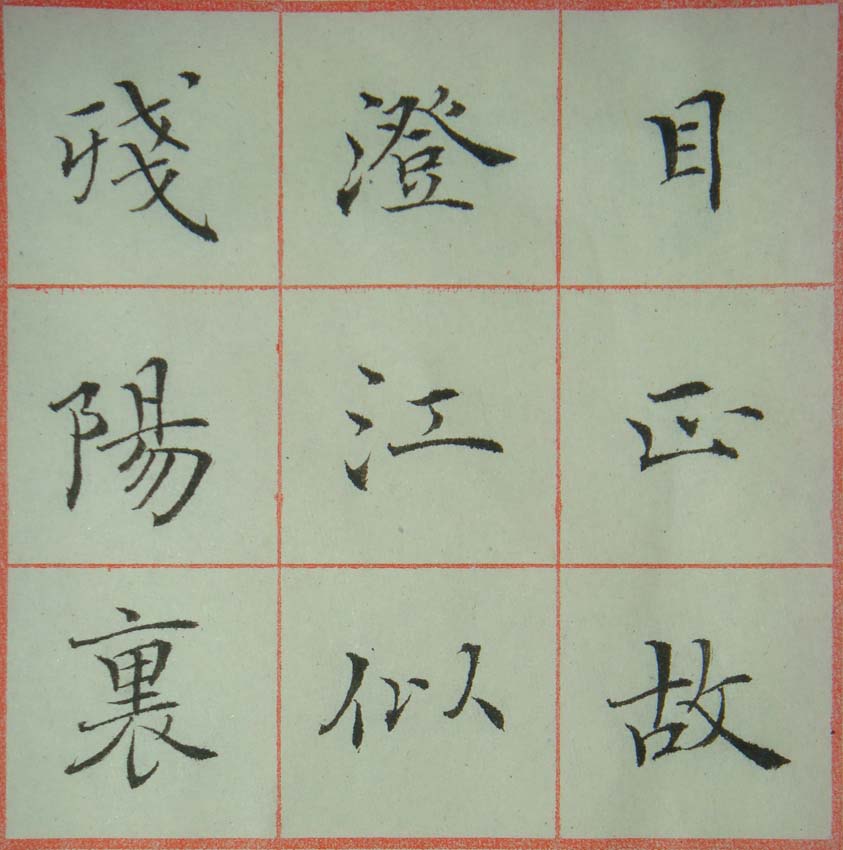 目正故
澄江似
殘陽裏